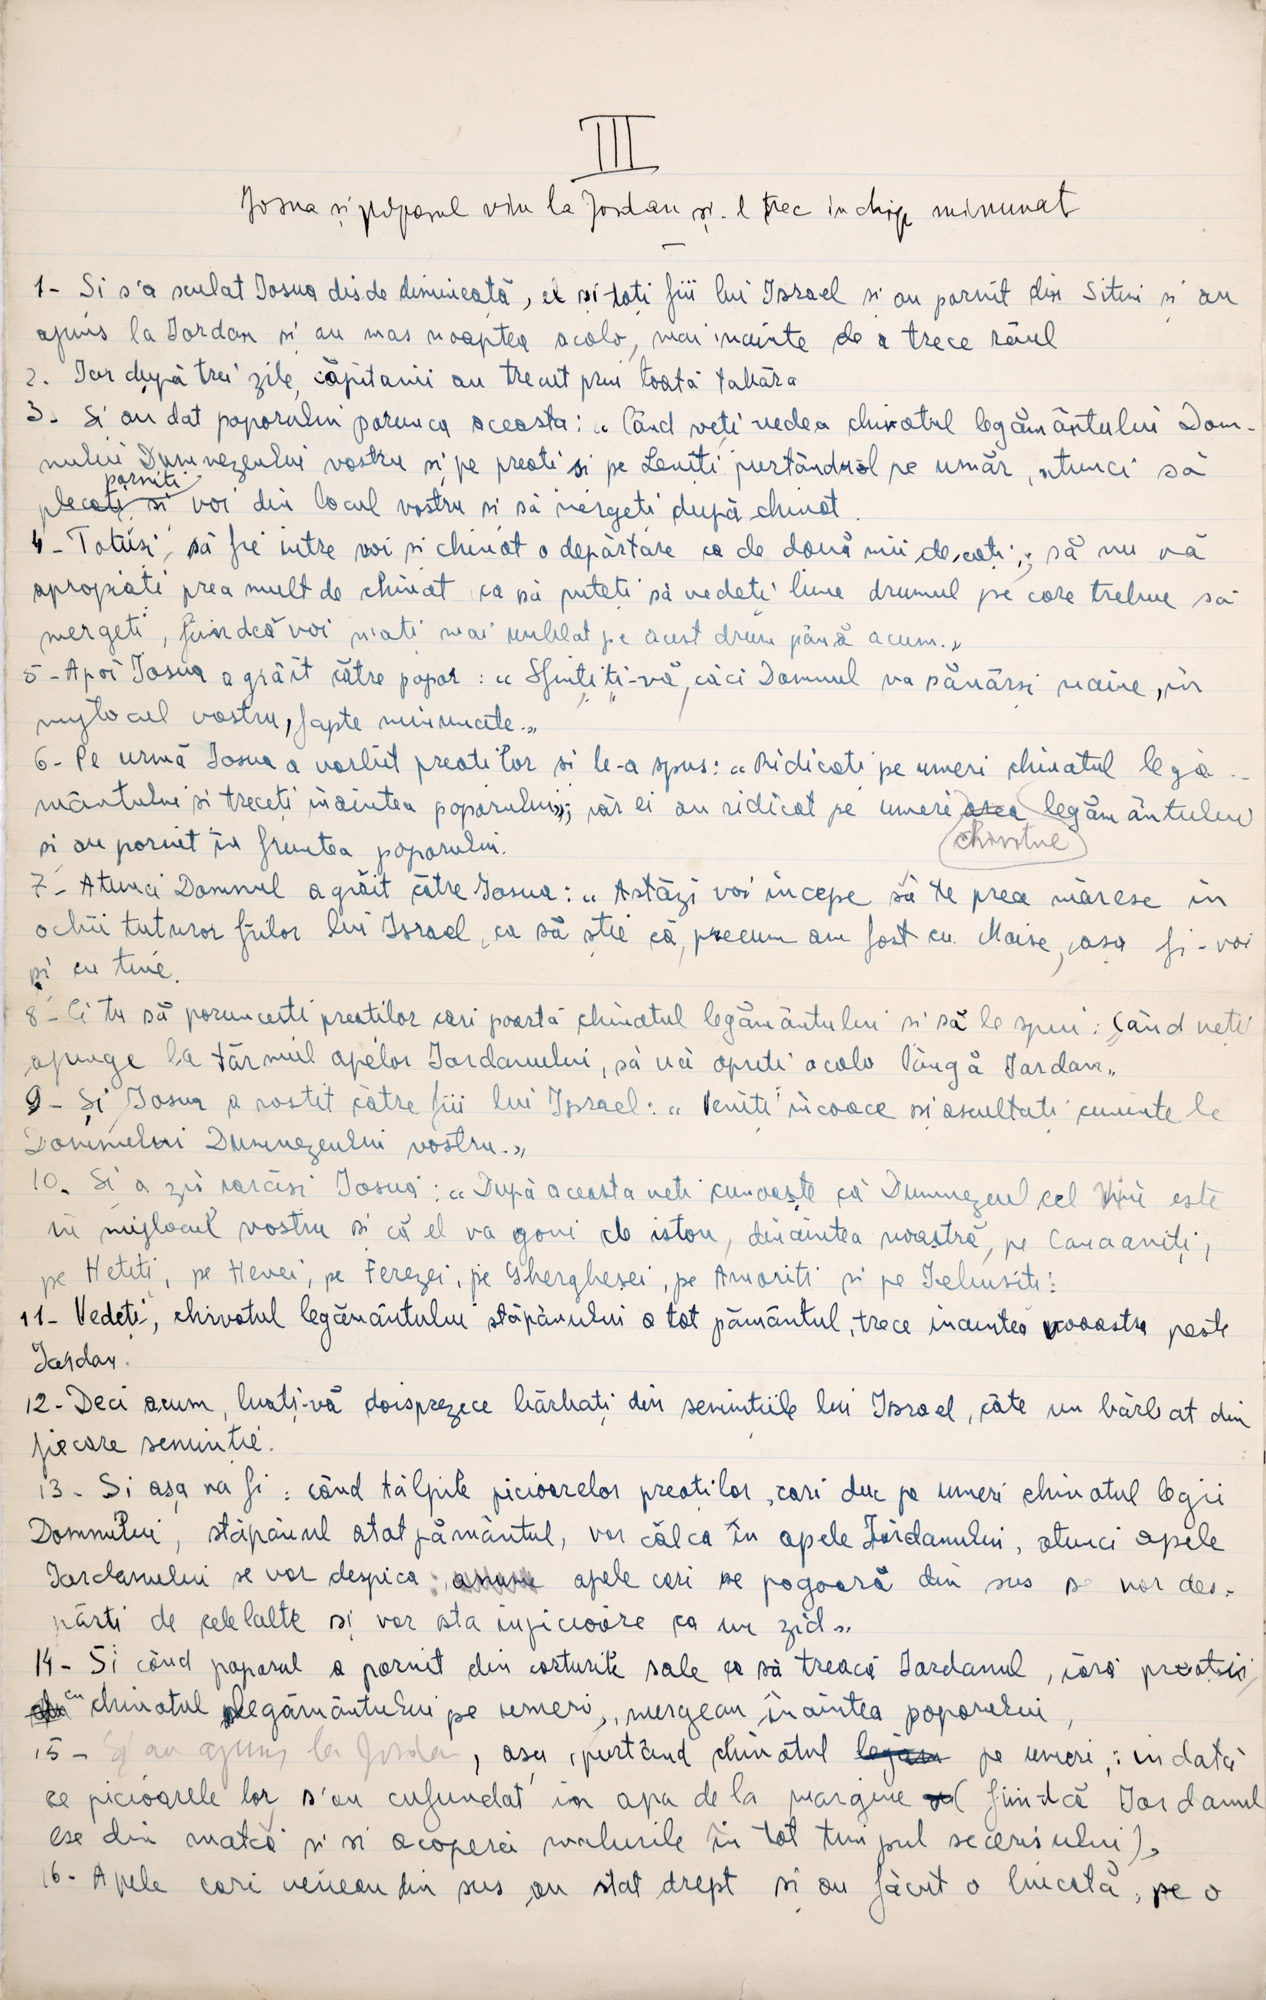 III
Josua și poporul vin la Jordan și-l trec in chip minunat
1- Si s'a sculat Iosua dis.de dimineață, el și toți fiii lui Israel și au pornit din Sitim și au
ajuns la Iordan și au mas noaptea acolo, mai'nainte de a trece râul
2. Iar după trei zile, căpitanii au trecut prin toată tabăra
3- Si au dat poporului porunca aceasta: „Când veți vedea chivotul legământului Dom-
nului Dumnezeului vostru și pe preoți și pe Leviți purtându-l pe umăr, atunci să
porniți
plecați și voi din locul vostru și să mergeți după chivot.
4- Totuși, să fie intre voi și chivot o depărtare ca de două mii de coți; să nu vă
apropiați prea mult de chivot ca să puteți să vedeți bine drumul pe care trebue să
mergeți, fiindcă voi n'ați mai umblat pe acest drum până acum.„
5-Apoi Iosua a grăit către popor: „Sfințiți-vă, căci Domnul va săvârși maine, in
mijlocul vostru, fapte minunate.„
6- Pe urmă Iosua a vorbit preoților si le-a spus: „Ridicați pe umeri chivotul legă-
mântului si treceți inaintea poporului„; iar ei au ridicat pe umeri arca legământului
chivotul
si au pornit în fruntea poporului.
7- Atunci Domnul a grăit către Iosua: „Astăzi voi incepe să te prea măresc in
ochii tuturor fiilor lui Israel, ca să știe că, precum am fost cu Moise, așa fi-voi
și cu tine.
8- Ci tu să poruncești preoților cari poartă chivotul legământului si să le spui: Când veți
ajunge la țărmul apelor Iordanului, să vă opriți acolo lângă Iordan„
9- Și Iosua a rostit către fiii lui Israel: „Veniți incoace si ascultați cuvintele
Domnului Dumnezeului vostru.„
10. Si a zis iarăsi Iosua: „După aceasta veți cunoaște că Dumnezeul cel Viu este
in mijlocul vostru si că el va goni de istov, dinaintea noastră, pe Canaaniți,
pe Hetiți, pe Hevei, pe Ferezei, pe Gherghesei, pe Amoriti si pe Iebusiti:
11- Vedeți, chivotul legământului stăpânului a tot pământul, trece inaintea vooastra peste
Iordan.
12- Deci acum, luați-vă doisprezece bărbați din semințiile lui Israel, câte un bărbat din
fiecare seminție.
13- Si așa va fi: când tălpile picioarelor preoților, cari duc pe umeri chivotul legii
Domnului, stăpânul atot pământul, vor călca în apele Iordanului, atunci apele
Iordanului se vor despica: anume apele cari se pogoară din sus se vor des-
părți de celelalte și vor sta inpicioare ca un zid„
14- Si când poporul a pornit din corturile sale ca să treacă Iordanul, iară preoții
cu chivotul legământului pe umeri, mergeau inaintea poporului,
15- Și au ajuns la Jordan, așa, purtând chivotul legăm pe umeri; indată
ce picioarele lor s'au cufundat in apa de la margine (fiindcă Iordanul
ese din matcă și si acoperă malurile în tot timpul secerișului),
16- Apele cari veneau din sus au stat drept si au făcut o bucată, pe o